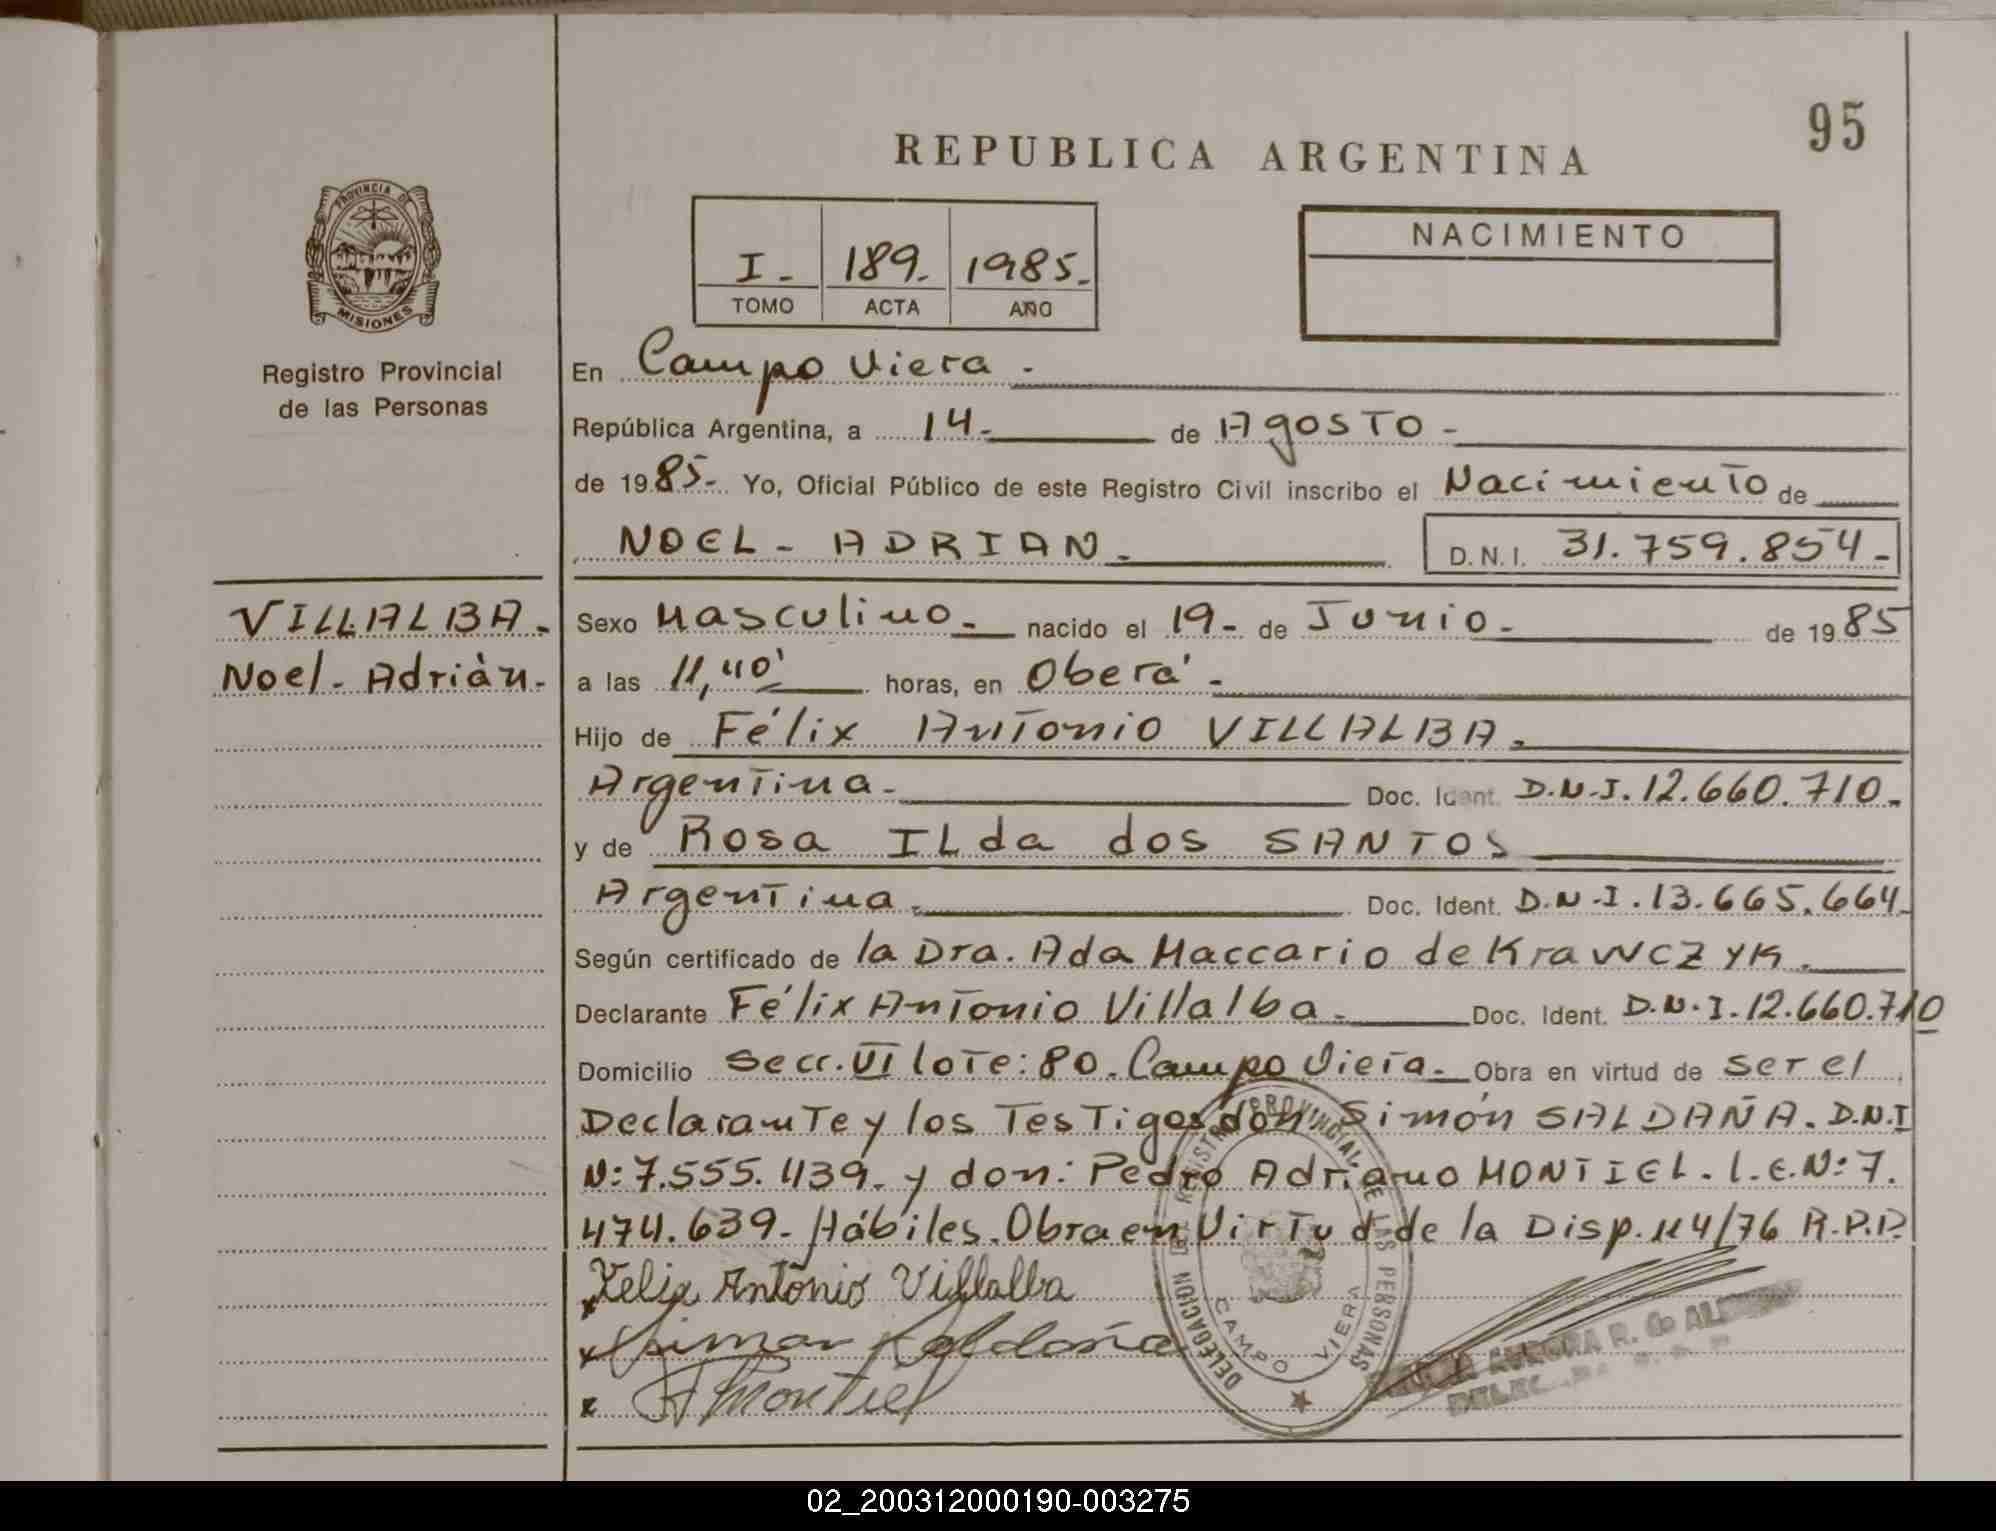 95
REPUBLICA ARGENTINA
PROVINCIA DE
MISIONES
Registro Provincial
de las Personas
I- 189- 1985-
TOMO ACTA AÑO
NACIMIENTO
En Campo Viera -
República Argentina, a 14- de Agosto -
de 1985- Yo, Oficial Público de este Registro Civil inscribo el Nacimiento de
NOEL - ADRIAN - D.N.I. 31.759.854-
VILLALBA -
Noel - Adrián -
Sexo Masculino - nacido el 19- de Junio - de 1985
a las 11,40' horas, en Oberá -
Hijo de Félix Antonio VILLALBA -
Argentina - Doc. Ident. D.N.I. 12.660.710-
y de Rosa ILda dos SANTOS
Argentina - Doc. Ident. D.N.I. 13.665.664-
Según certificado de la Dra. Ada Maccario de KraWCZYK.
Declarante Félix Antonio Villalba - Doc. Ident. D.N.I. 12.660.710
Domicilio Secc. VI lote: 80. Campo Viera - Obra en virtud de ser el
Declarante y los Testigos don: Simón SALDAÑA. D.N.I
N: 7.555.439- y don: Pedro Adriano MONTIEL. L.E.N: 7.
474.639- Hábiles. Obra en Virtud de la Disp. 114/76 R.P.P.
x Felix Antonio Villalba
x Simon Saldaña
x Montiel
DELEGACION DEL REGISTRO PROVINCIAL DE LAS PERSONAS
CAMPO VIERA
AURORA R. G. DE
02_200312000190-003275